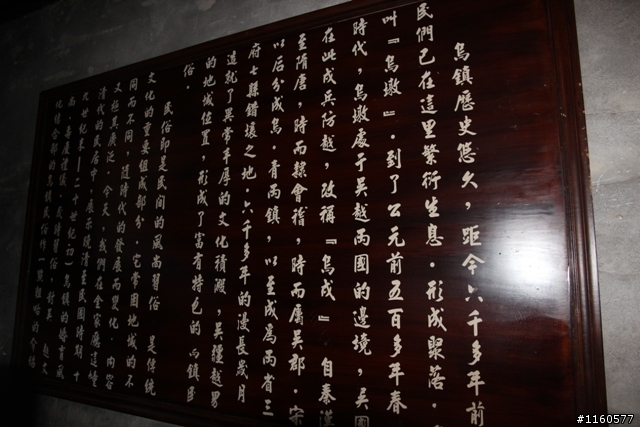 烏鎮歷史悠久，距今六千多年前
民們已在這里繁衍生息．形成聚落．
叫『烏墩』．到了公元前五百多年春
時代，烏墩處于吳越兩國的邊境，吳國
在此戍兵防越，改稱『烏戍』．自秦漢
至隋唐，時而隸會稽，時而屬吳郡．宋
以后分成烏．青兩鎮，以至成為兩省三
府七縣錯壤之地．六千多年的漫長歲月
造就了異常丰厚的文化積澱，吳疆越界
的地域位置，形成了富有特色的
俗．
民俗即是民间的風尚習俗 是傳統
文化的重要組成部分．它常因地域的不
同而不同，隨時代的發展而變化．內容
文杜其廣泛．今天，我們在金家廳這幢
清代的民居中，展示晚清至民國時期
#1160577